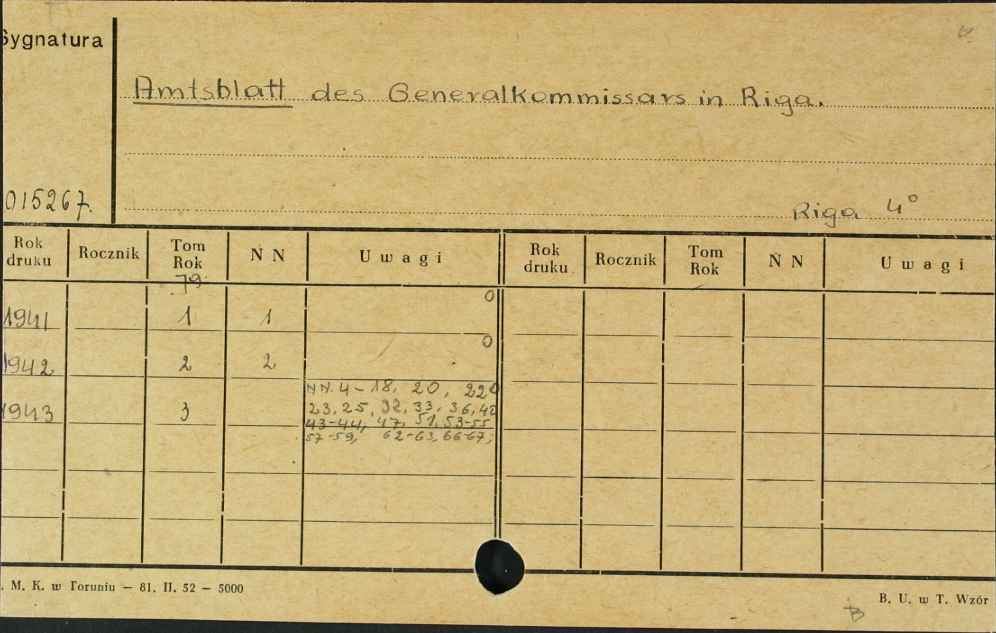 Sygnatura
Amtsblatt des Generalkommissars in Riga.
015267.
Riga 4°
Rok druku Rocznik Tom Rok N N Uwagi Rok druku Rocznik Tom Rok N N Uwagi
79
1941 1 1 0
1942 2 2 0
1943 3 NN. 4-18, 20, 22
23, 25, 32, 33, 36, 42
43-44, 47, 51, 53-55
57-59, 62-63, 66-67,
. M. K. w Toruniu — 81. II. 52 — 5000
B. U. w T. Wzór
B